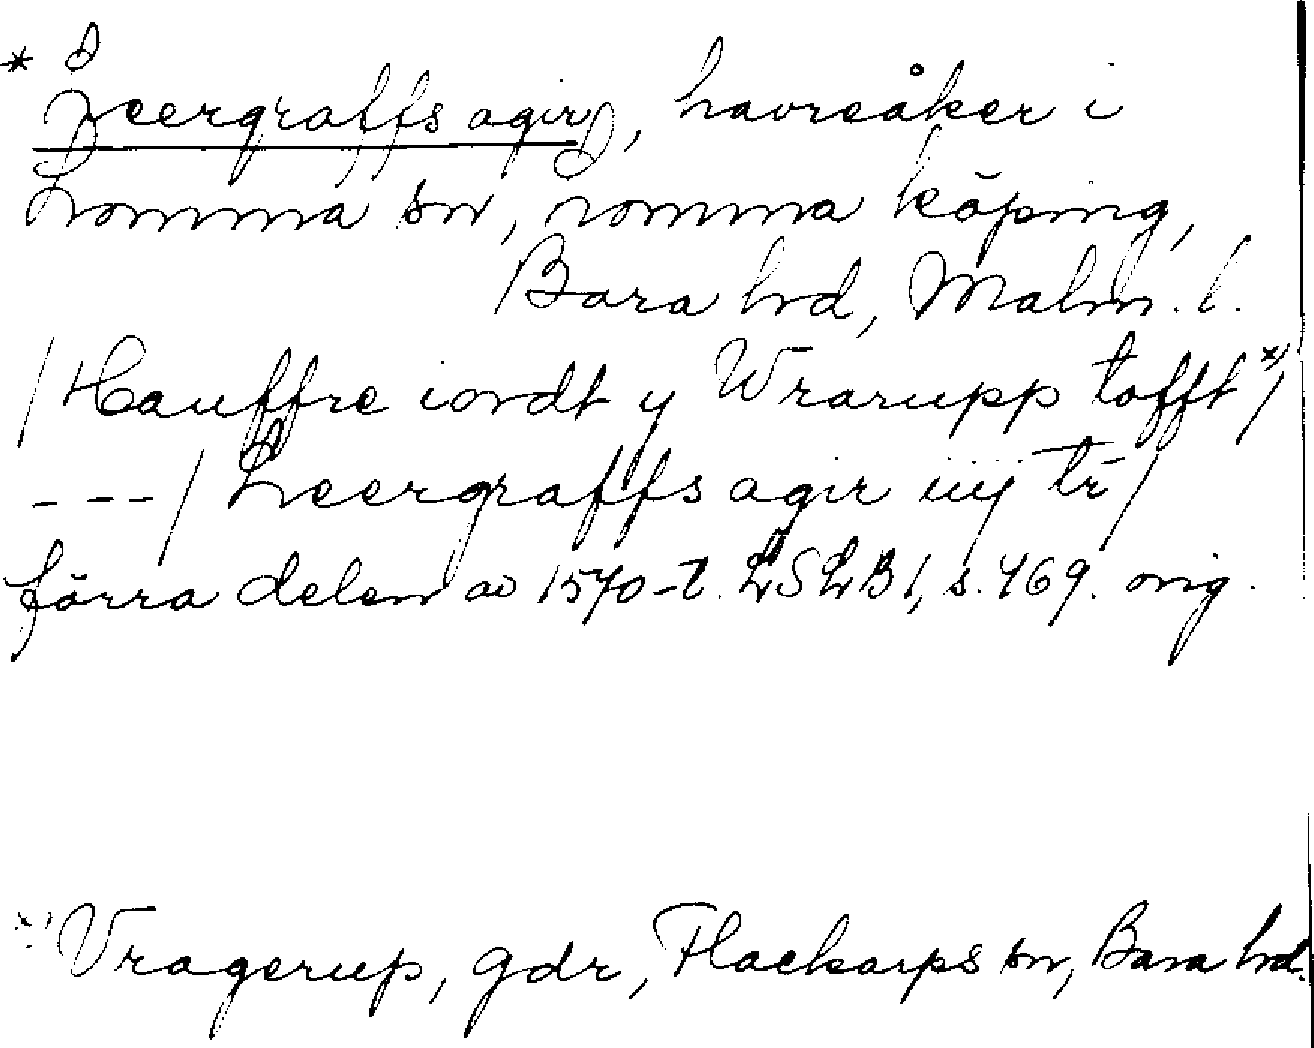 * Leergraffs agir, havreåker i
Lomma sn, Lomma köping,
Bara hd, Malm. l.
/Hauffre iordt y Wrarupp tofft x)/
---/ Leergraffs agir iiij tr̄/
förra delen av 1570-t. LSLB 1, s. 469. orig.
x) Vragerup, gdr, Flackarps sn, Bara hd.